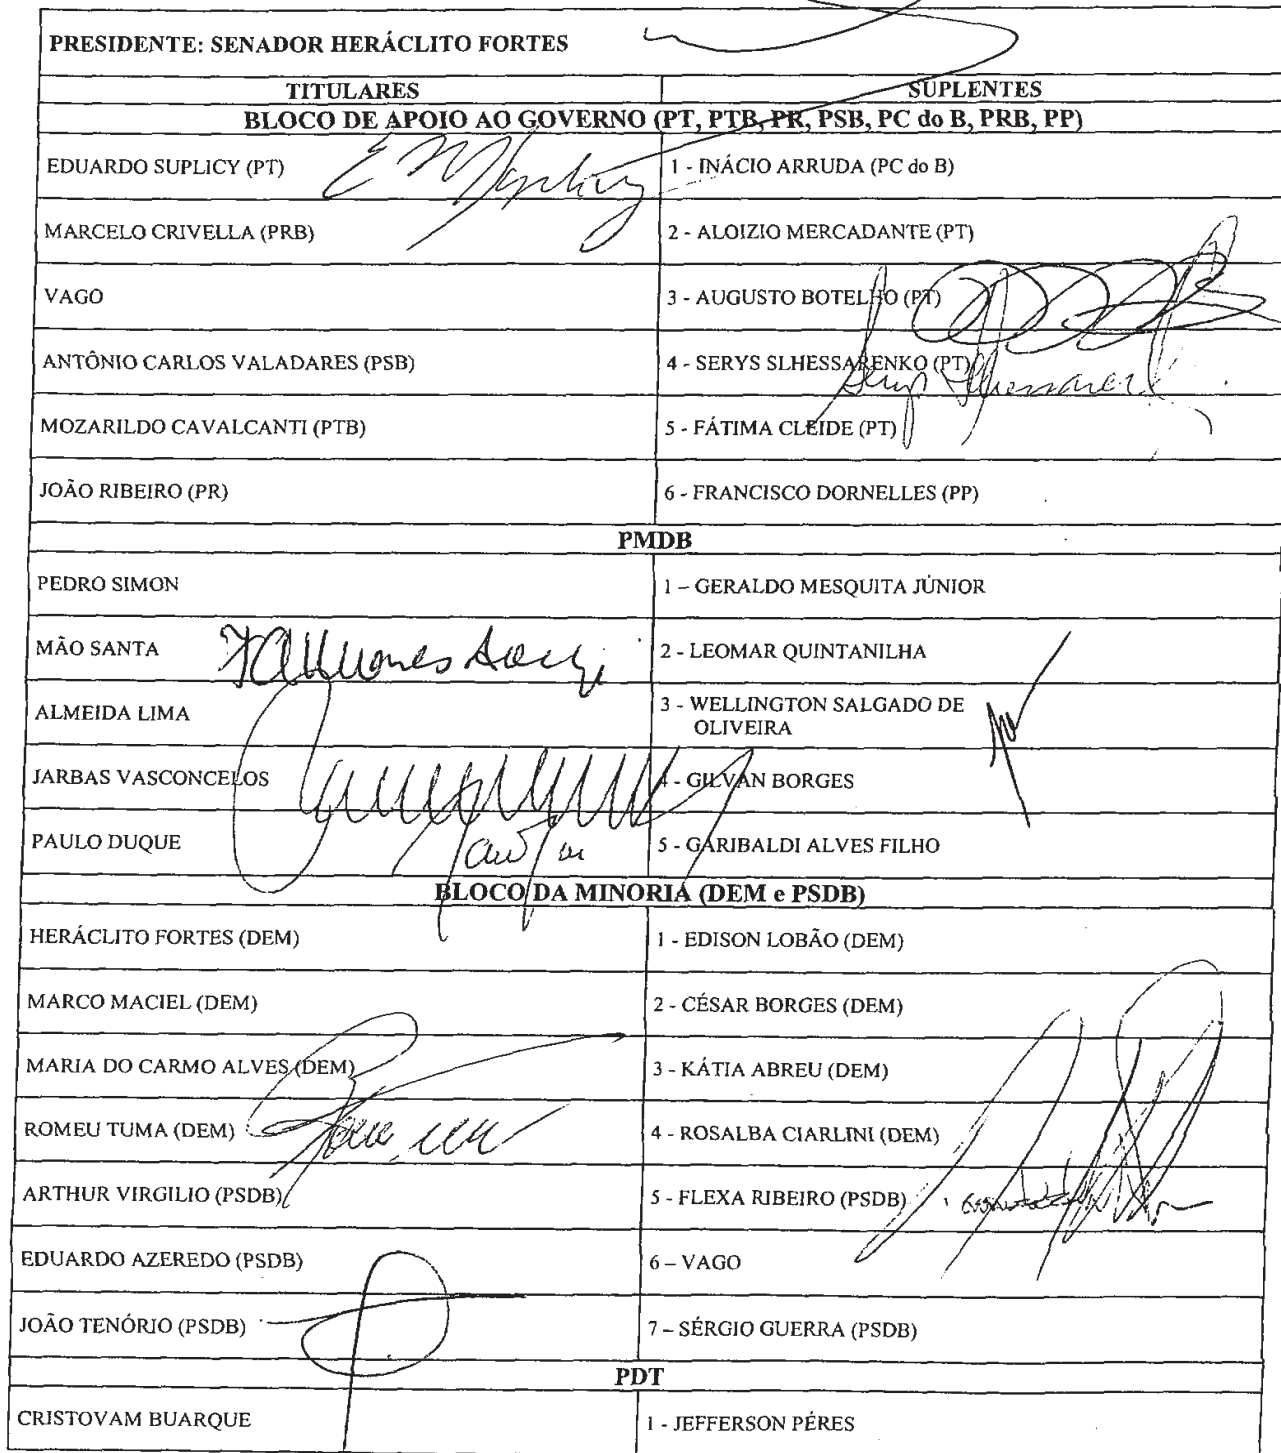 PRESIDENTE: SENADOR HERÁCLITO FORTES
TITULARES SUPLENTES
BLOCO DE APOIO AO GOVERNO (PT, PTB, PR, PSB, PC do B, PRB, PP)
EDUARDO SUPLICY (PT) 1 - INÁCIO ARRUDA (PC do B)
MARCELO CRIVELLA (PRB) 2 - ALOIZIO MERCADANTE (PT)
VAGO 3 - AUGUSTO BOTELHO (PT)
ANTÔNIO CARLOS VALADARES (PSB) 4 - SERYS SLHESSARENKO (PT)
MOZARILDO CAVALCANTI (PTB) 5 - FÁTIMA CLEIDE (PT)
JOÃO RIBEIRO (PR) 6 - FRANCISCO DORNELLES (PP)
PMDB
PEDRO SIMON 1 – GERALDO MESQUITA JÚNIOR
MÃO SANTA 2 - LEOMAR QUINTANILHA
ALMEIDA LIMA 3 - WELLINGTON SALGADO DE
OLIVEIRA
JARBAS VASCONCELOS 4 - GILVAN BORGES
PAULO DUQUE 5 - GARIBALDI ALVES FILHO
BLOCO DA MINORIA (DEM e PSDB)
HERÁCLITO FORTES (DEM) 1 - EDISON LOBÃO (DEM)
MARCO MACIEL (DEM) 2 - CÉSAR BORGES (DEM)
MARIA DO CARMO ALVES (DEM) 3 - KÁTIA ABREU (DEM)
ROMEU TUMA (DEM) 4 - ROSALBA CIARLINI (DEM)
ARTHUR VIRGILIO (PSDB) 5 - FLEXA RIBEIRO (PSDB)
EDUARDO AZEREDO (PSDB) 6 – VAGO
JOÃO TENÓRIO (PSDB) 7 – SÉRGIO GUERRA (PSDB)
PDT
CRISTOVAM BUARQUE 1 - JEFFERSON PÉRES